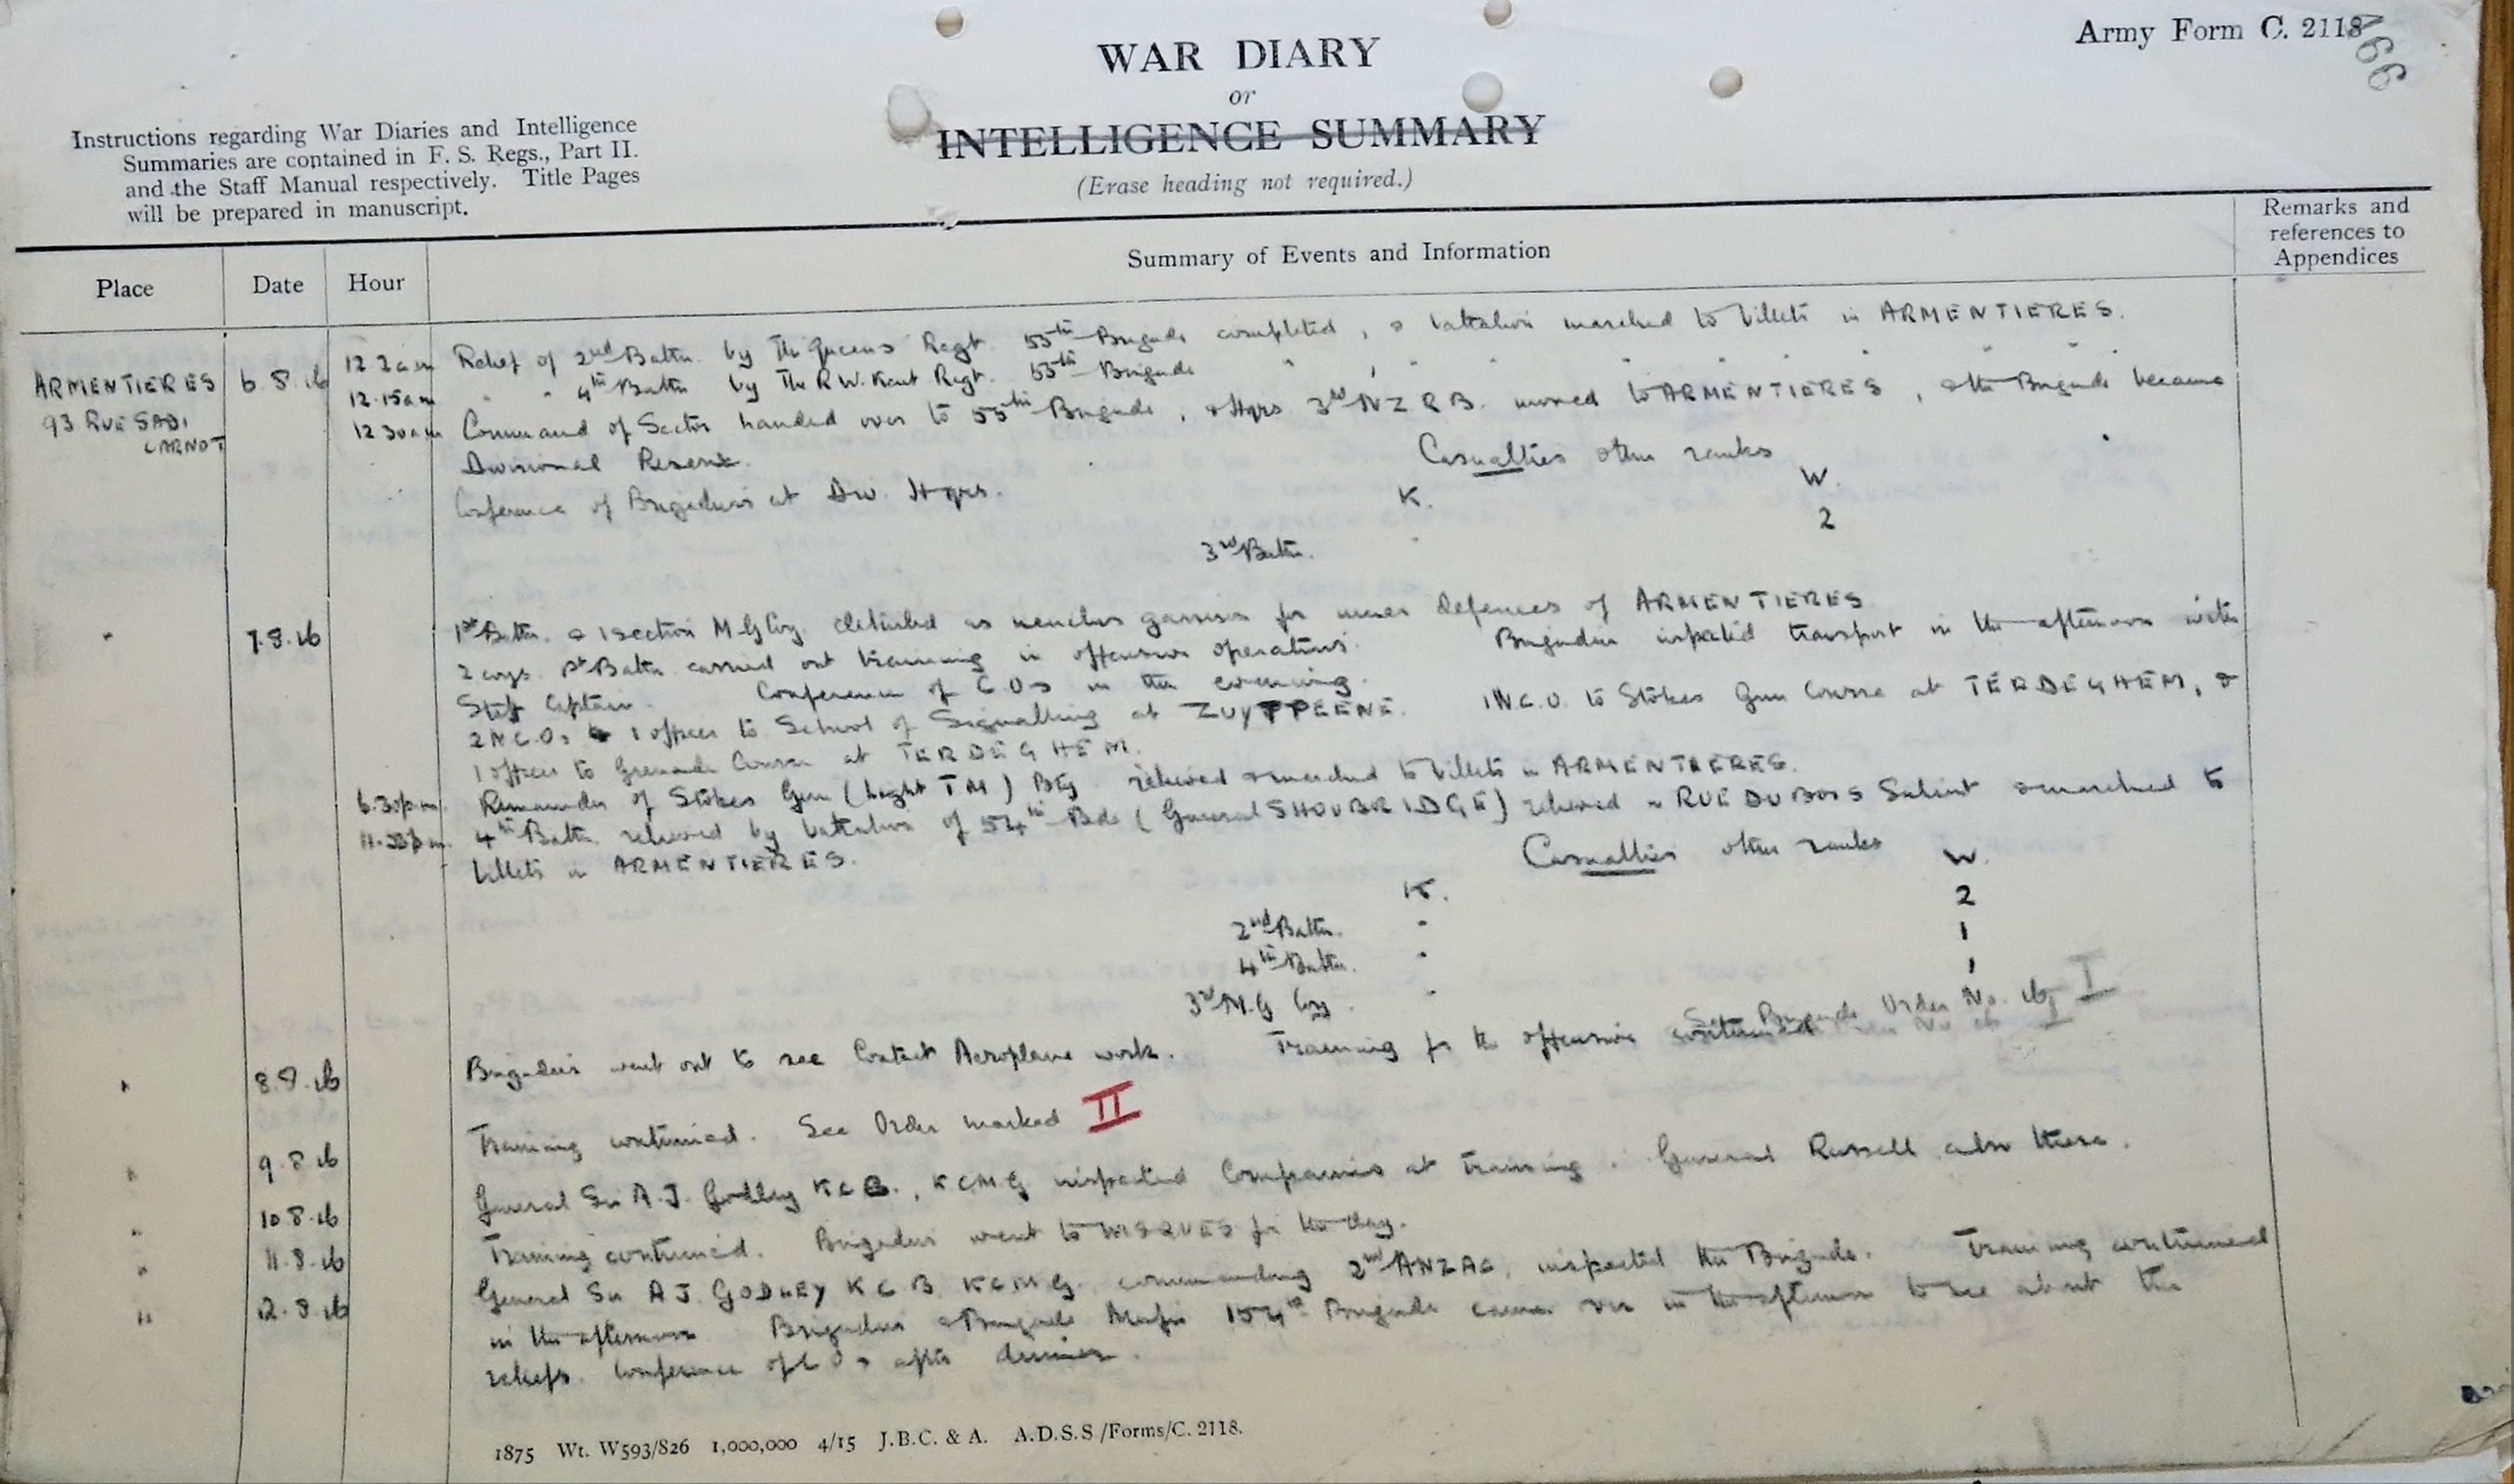 Army Form C. 2118
WAR DIARY
or
INTELLIGENCE SUMMARY
(Erase heading not required.)
Instructions regarding War Diaries and Intelligence
Summaries are contained in F. S. Regs., Part II.
and the Staff Manual respectively. Title Pages
will be prepared in manuscript.
Place
Date
Hour
Summary of Events and Information
Remarks and
references to
Appendices
ARMENTIERES
93 RUE SADI
CARNOT
6.8.16
12.2am Relief of 2nd Battn. by The Queens Regt. 55th Brigade completed, & battalion marched to billets in ARMENTIERES.
12.15am " " 4th Battn by The R.W. Kent Regt. 55th Brigade " " " " " " "
12.30am Command of Sector handed over to 55th Brigade, & Hqrs 3rd N Z R B. moved to ARMENTIERES, & the Brigade became
Divisional Reserve.
Casualties other ranks
Conference of Brigadiers at Div. Hqrs.
K. W.
3rd Battn. - 2
" 7.8.16 1st Battn. & 1 section M G Coy. detailed as garrison for inner defences of ARMENTIERES
2 coys. 1st Battn carried out training in offensive operations. Brigadier inspected transport in the afternoon with
Staff Captain. Conference of C.O.s in the evening.
2 N.C.Os 1 officer to School of Signalling at ZUYTPEENE. 1 N.C.O. to Stokes Gun Course at TERDEGHEM, &
1 officer to Grenade Course at TERDEGHEM.
6.30pm Remainder of Stokes Gun (Light T M) Bty. relieved & marched to billets in ARMENTIERES.
4th Battn relieved by battalion of 54th Bde (General SHOUBRIDGE) relieved in RUE DU BOIS Salient & marched to
billets in ARMENTIERES.
Casualties other ranks
K. W.
2nd Battn. - 2
4th Battn. - 1
3rd M.G Coy. - 1
See Brigade Order No. 16 I
" 8.8.16 Brigadier went out to see Contact Aeroplane work. Training for the offensive continued
" 9.8.16 Training continued. See Order marked II
" 10.8.16 General Sir A.J. Godley KCB., KCMG inspected Companies at training. General Russell also there.
" 11.8.16 Training continued. Brigadier went to for the day.
" 12.8.16 General Sir A J GODLEY K C B K C M G. commanding 2nd ANZAC, inspected the Brigade. Training continued
in the afternoon Brigadier & Brigade Major 154th Brigade came over in the afternoon to see about the
reliefs. Conference of C O s after dinner.
1875 Wt. W593/826 1,000,000 4/15 J.B.C. & A. A.D.S.S/Forms/C. 2118.